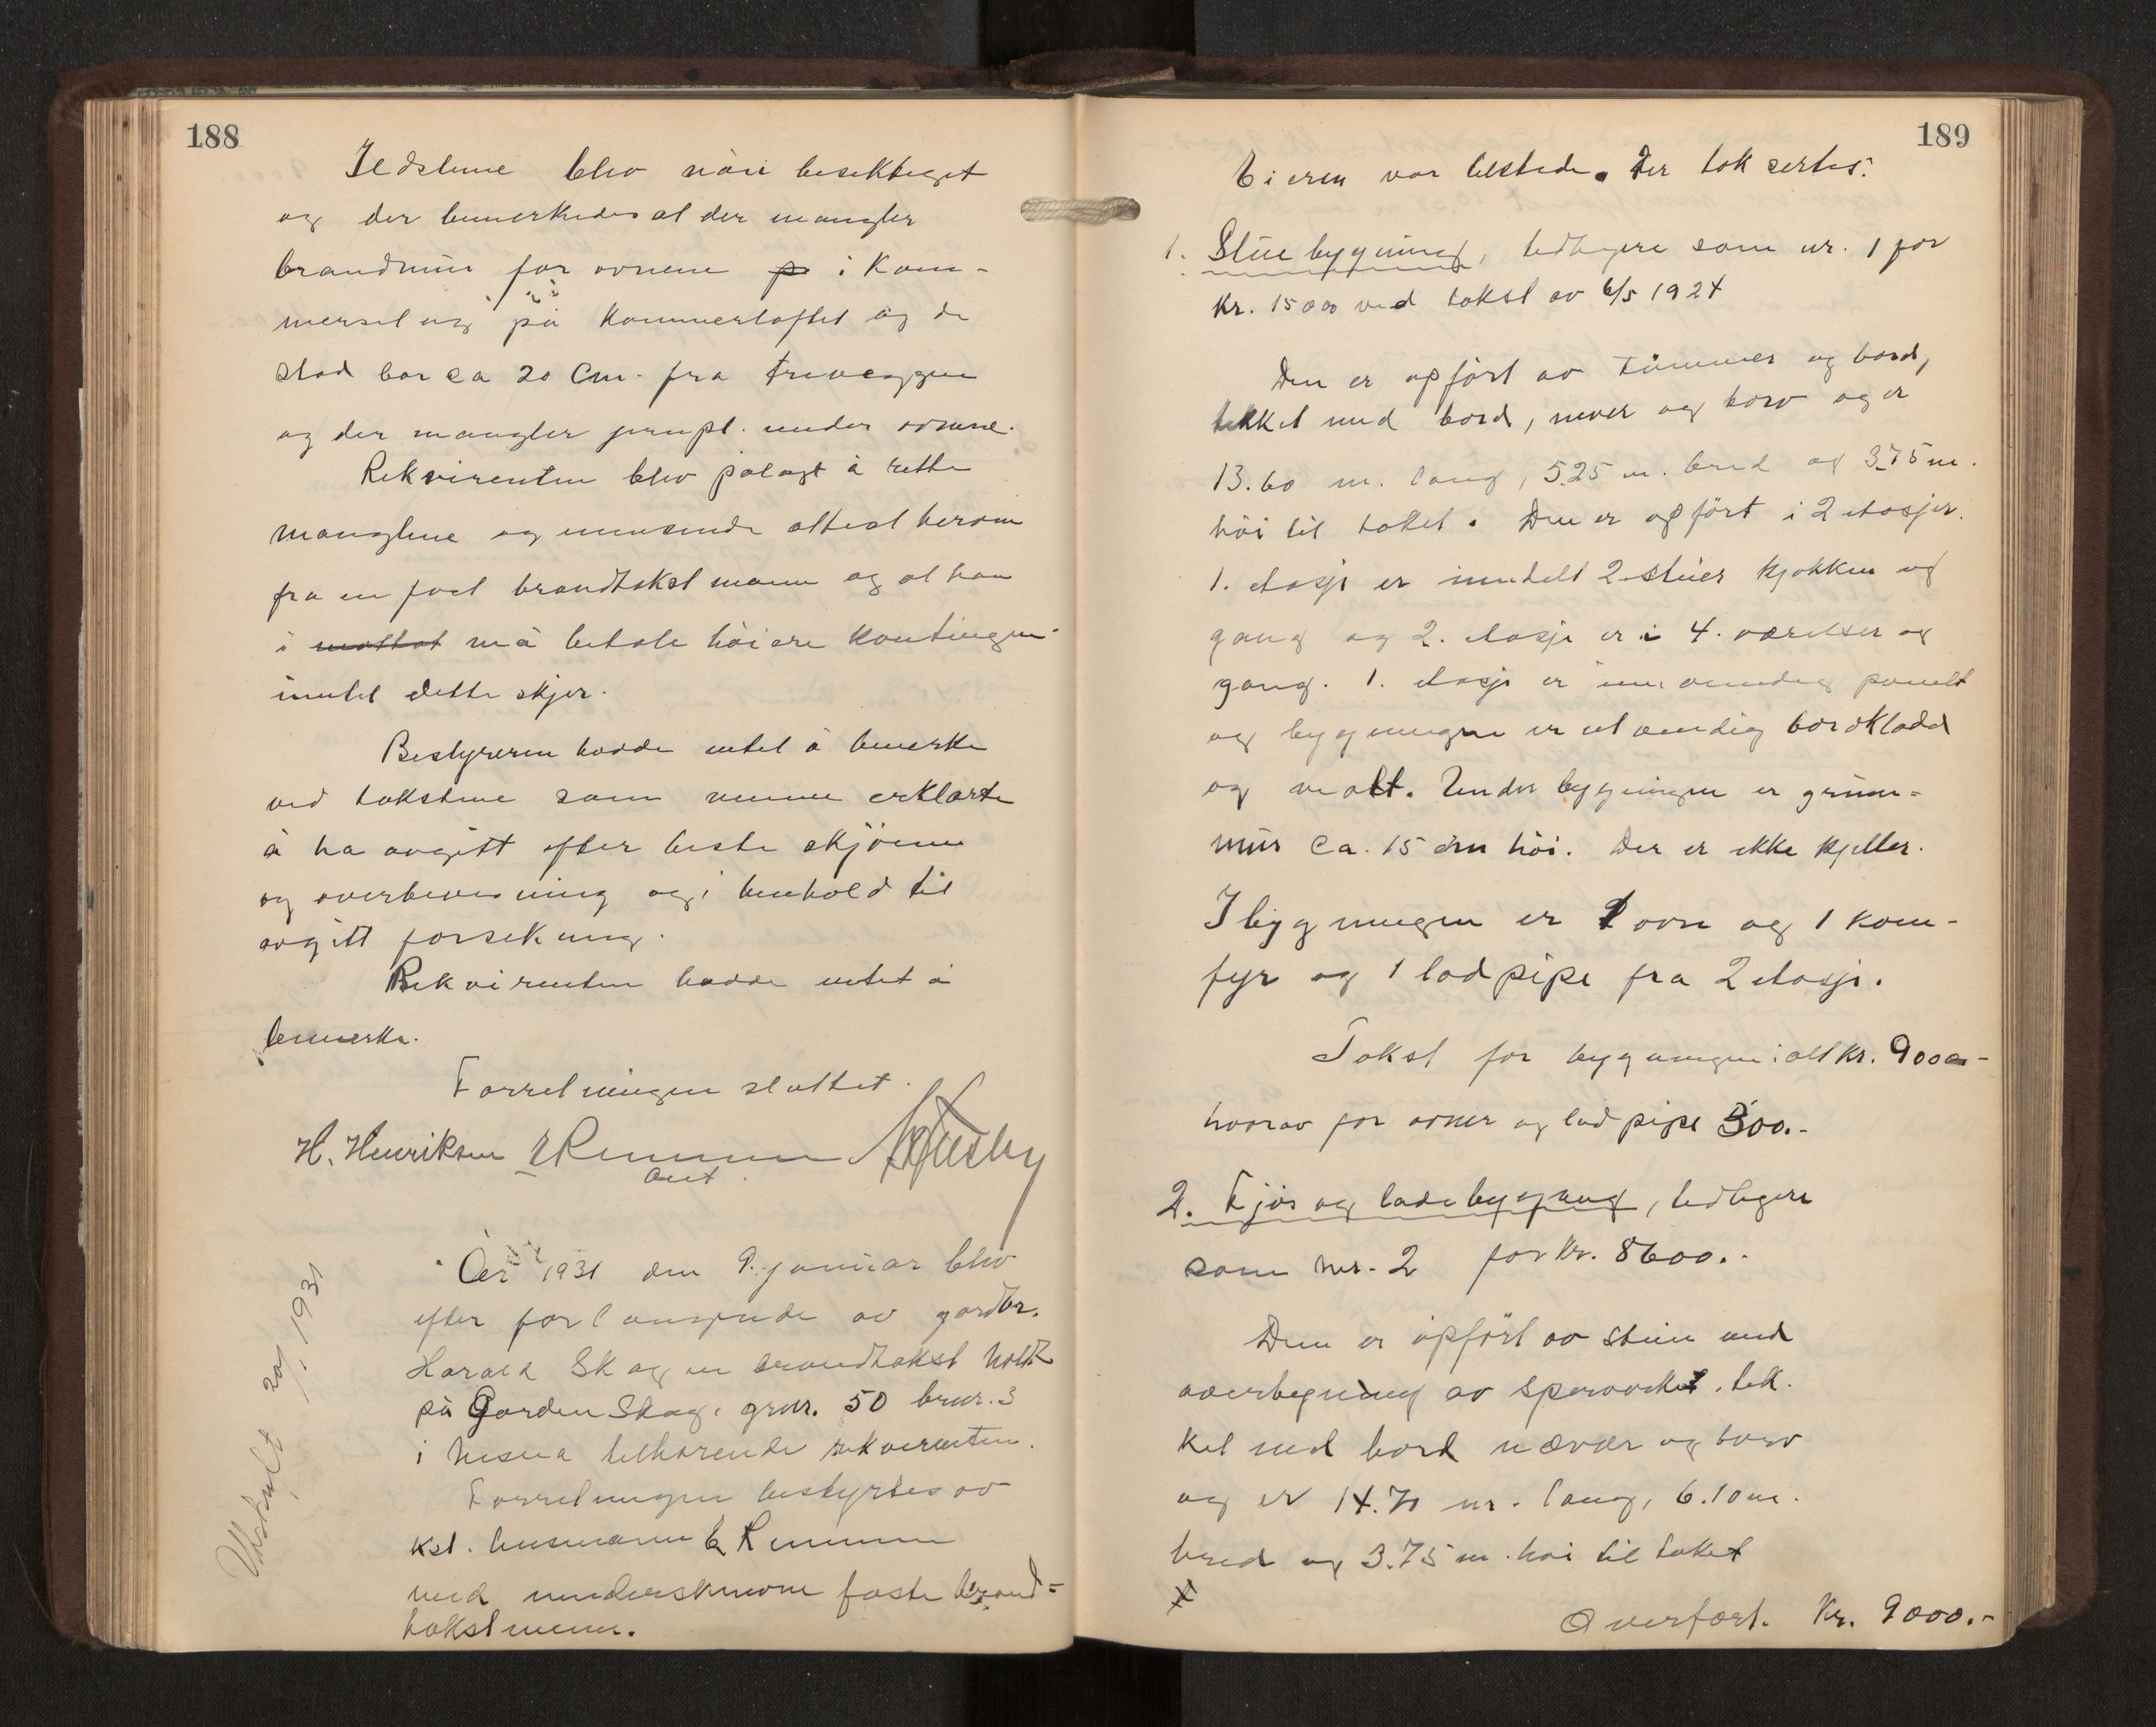 188
Ildstene blev nöie besiktiget
og der bemerkedes at der mangler
brandmur for ovnene p i Kam-
merset og på Kammerloftet og de
stod bar ca 20 Cm. fra treveggen
og der mangler jernpl. under ovnene.
Rekvirenten blev pålagt å rette
manglene og innsende attest herom
fra en fast brandtakst mann og at han
i mottat må betale höiere Kontingen
inntil dette skjer.
Bestyreren hadde intet å bemerke
ved takstene som mennene erklærte
å ha avgitt efter beste skjönn
og overbevisning og i henhold til
avgitt forsikring.
Rekvirenten hadde intet å
bemerke.
Forretningen sluttet.
H. Henriksen E Remmen A Husby
Aut.
År 1931 den 9. januar blev
efter forlangende av gardbr.
Harald Skog en brandtakst holdt
på Garden Skog, grnr. 50 brnr. 3
i Nesna tilhørende rekvirenten.
Forretningen bestyrtes av
kst. lensmann E Remmen
med underskrevne faste brand-
takstmenn.
Utskrift 20/1 1931
189
Eieren var tilstede. Der taksertes:
1. Stüebygning, tidligere som nr. 1 for
Kr. 15000 ved takst av 6/5 1924
Den er opfört av tömmer og bord,
tekket med bord, never og torv og er
13.60 m. lang, 5.25 m. bred og 3.75 m.
höi til taket. Den er opfört i 2 etasjer.
1. etasje er inndelt 2 stüer kjökken og
gang og 2. etasje er i 4. værelser og
gang. 1. etasje er innvendig panelt
og bygningen er utvendig bordkladd
og malt. Under bygningen er grunn-
mür ca. 15 cm höi. Der er ikke kjeller.
I bygningen er 1 ovn og 1 kom-
fyr og 1 lodpipe fra 2 etasje.
Takst for bygningen i alt kr. 9000-
hvorav for ovner og lodpipe 300.-
2. Fjös og ladebygning, tidligere
som nr. 2 for kr. 8600.-
Den er opfört av stein med
overbygning av sperverket. tek.
ket med bord næver og torv
og er 14.70 m. lang, 6.10 m.
bred og 3.75 m. höi til taket
Overført. Kr. 9000.-